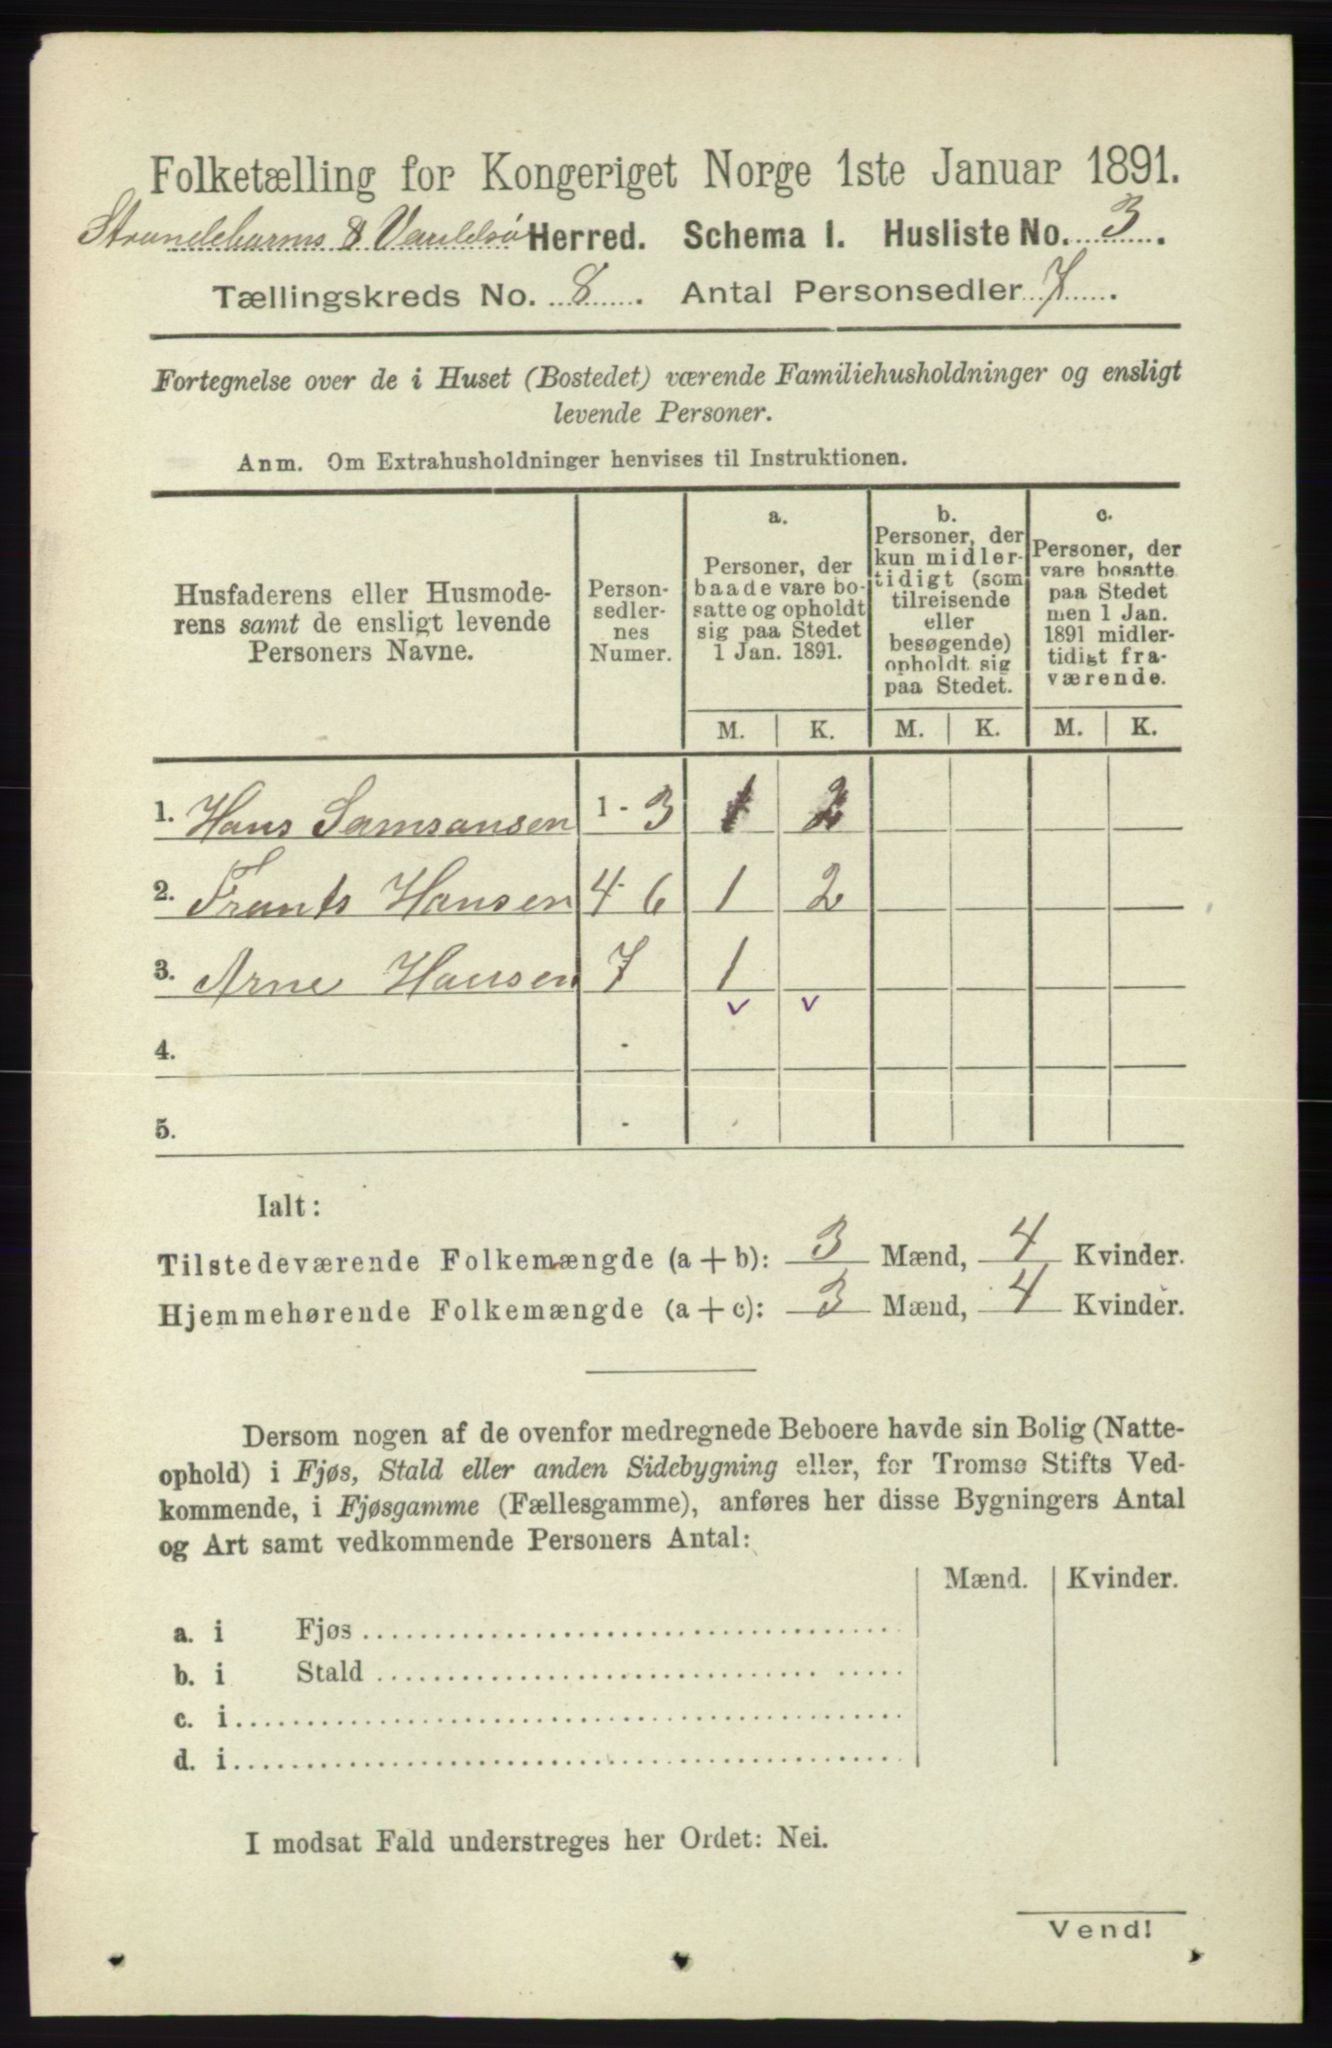 Folketælling for Kongeriget Norge 1ste Januar 1891.
Strandebarms & Varildsø Herred. Schema I. Husliste No. 3.
Tællingskreds No. 8. Antal Personsedler 7.
Fortegnelse over de i Huset (Bostedet) værende Familiehusholdninger og ensligt
levende Personer.
Anm. Om Extrahusholdninger henvises til Instruktionen.
Husfaderens eller Husmode-
rens samt de ensligt levende
Personers Navne.
Person-
sedler-
nes
Numer.
a.
Personer, der
baade vare bo-
satte og opholdt
sig paa Stedet
1 Jan. 1891.
b.
Personer, der
kun midler-
tidigt (som
tilreisende
eller
besøgende)
opholdt sig
paa Stedet.
c.
Personer, der
vare bosatte
paa Stedet
men 1 Jan.
1891 midler-
tidigt fra-
værende.
M. K. M. K. M. K.
1. Hans Samsonsen 1 - 3 1 2
2. Frants Hansen 4 - 6 1 2
3. Arne Hansen 7 1
v v
4. -
5. -
Ialt:
Tilstedeværende Folkemængde (a + b): 3 Mænd, 4 Kvinder.
Hjemmehørende Folkemængde (a + c): 3 Mænd, 4 Kvinder.
Dersom nogen af de ovenfor medregnede Beboere havde sin Bolig (Natte-
ophold) i Fjøs, Stald eller anden Sidebygning eller, for Tromsø Stifts Ved-
kommende, i Fjøsgamme (Fællesgamme), anføres her disse Bygningers Antal
og Art samt vedkommende Personers Antal:
Mænd. Kvinder.
a. i Fjøs
b. i Stald
c. i
d. i
I modsat Fald understreges her Ordet: Nei.
Vend!